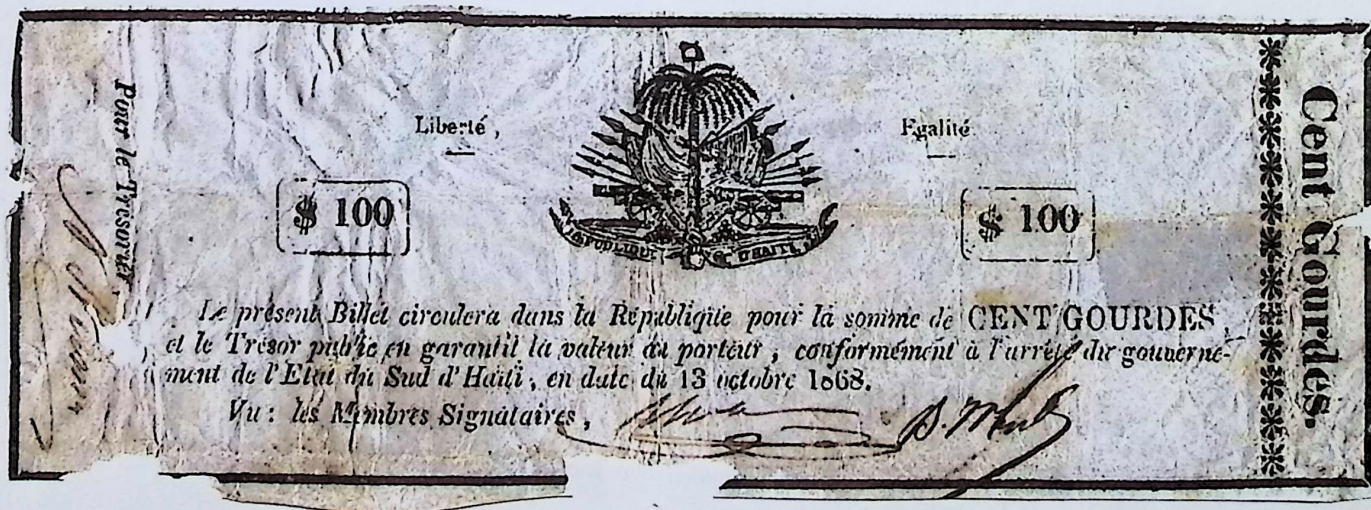 Pour le Trésorier,
Liberté,
Egalité
$ 100
$ 100
REPUBLIQUE D'HAITI
Le présent Billet circulera dans la République pour la somme de CENT GOURDES,
et le Trésor public en garantit la valeur au porteur, conformément à l'arrêté du gouverne-
ment de l'Etat du Sud d'Haïti, en date du 13 octobre 1868.
Vu : les Membres Signataires,
Cent Gourdes.